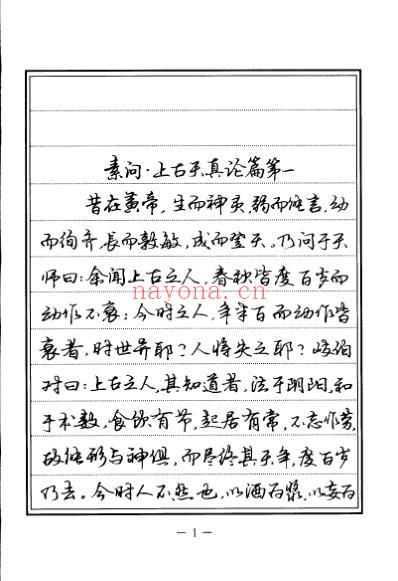 素问·上古天真论篇第一
昔在黄帝,生而神灵,弱而能言,幼
而徇齐,長而敦敏,成而登天。乃问于天
师曰:余闻上古之人,春秋皆度百岁而
nayona.cn
动作不衰;今时之人,年半百而动作皆
衰者,时世异耶?人将失之耶?岐伯
对曰:上古之人,其知道者,法于阴阳,和
于术数,食饮有节,起居有常,不忘作劳,
故能形与神俱,而尽终其天年,度百岁
乃去。今时人不然也,以酒为浆,以妄为
— 1 —